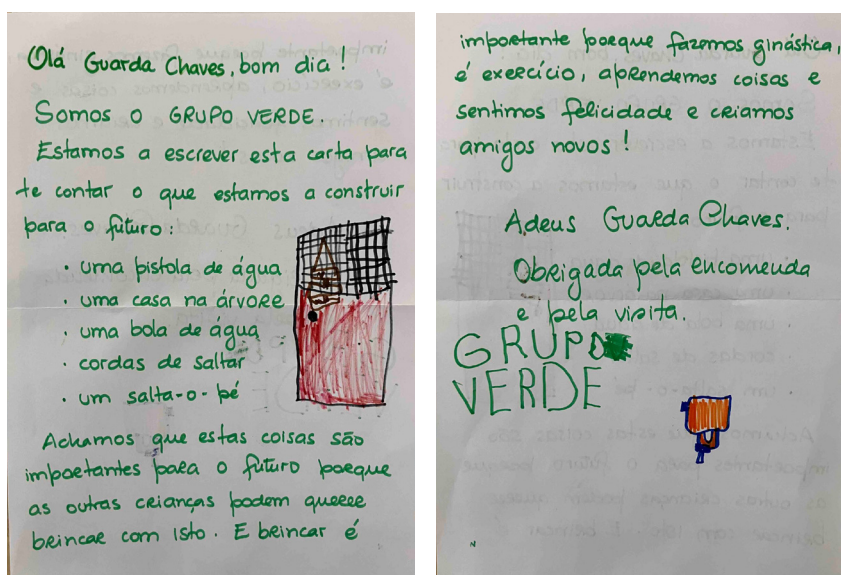 Olá Guarda Chaves, bom dia!
Somos o GRUPO VERDE.
Estamos a escrever esta carta para
te contar o que estamos a construir
para o futuro:
· uma pistola de água
· uma casa na árvore
· uma bola de água
· cordas de saltar
· um salta-o-pé
Achamos que estas coisas são
importantes para o futuro porque
as outras crianças podem querer
brincar com isto. E brincar é
importante porque fazemos ginástica,
é exercício, aprendemos coisas e
sentimos felicidade e criamos
amigos novos!
Adeus Guarda Chaves.
Obrigada pela encomenda
e pela visita.
GRUPO
VERDE